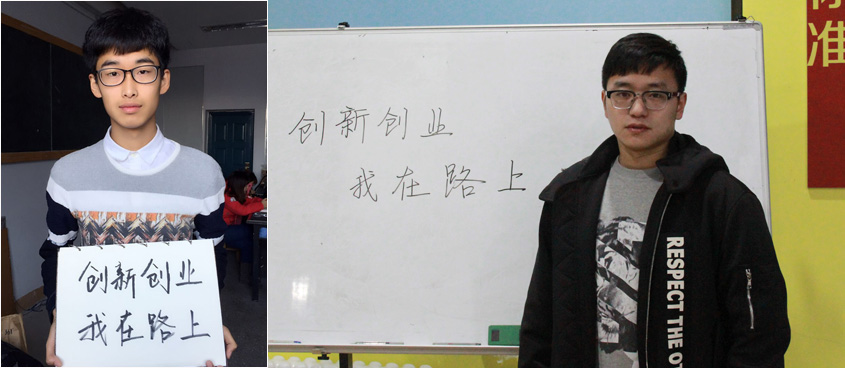 创新创业
我在路上
创新创业
我在路上
RESPECT THE
准